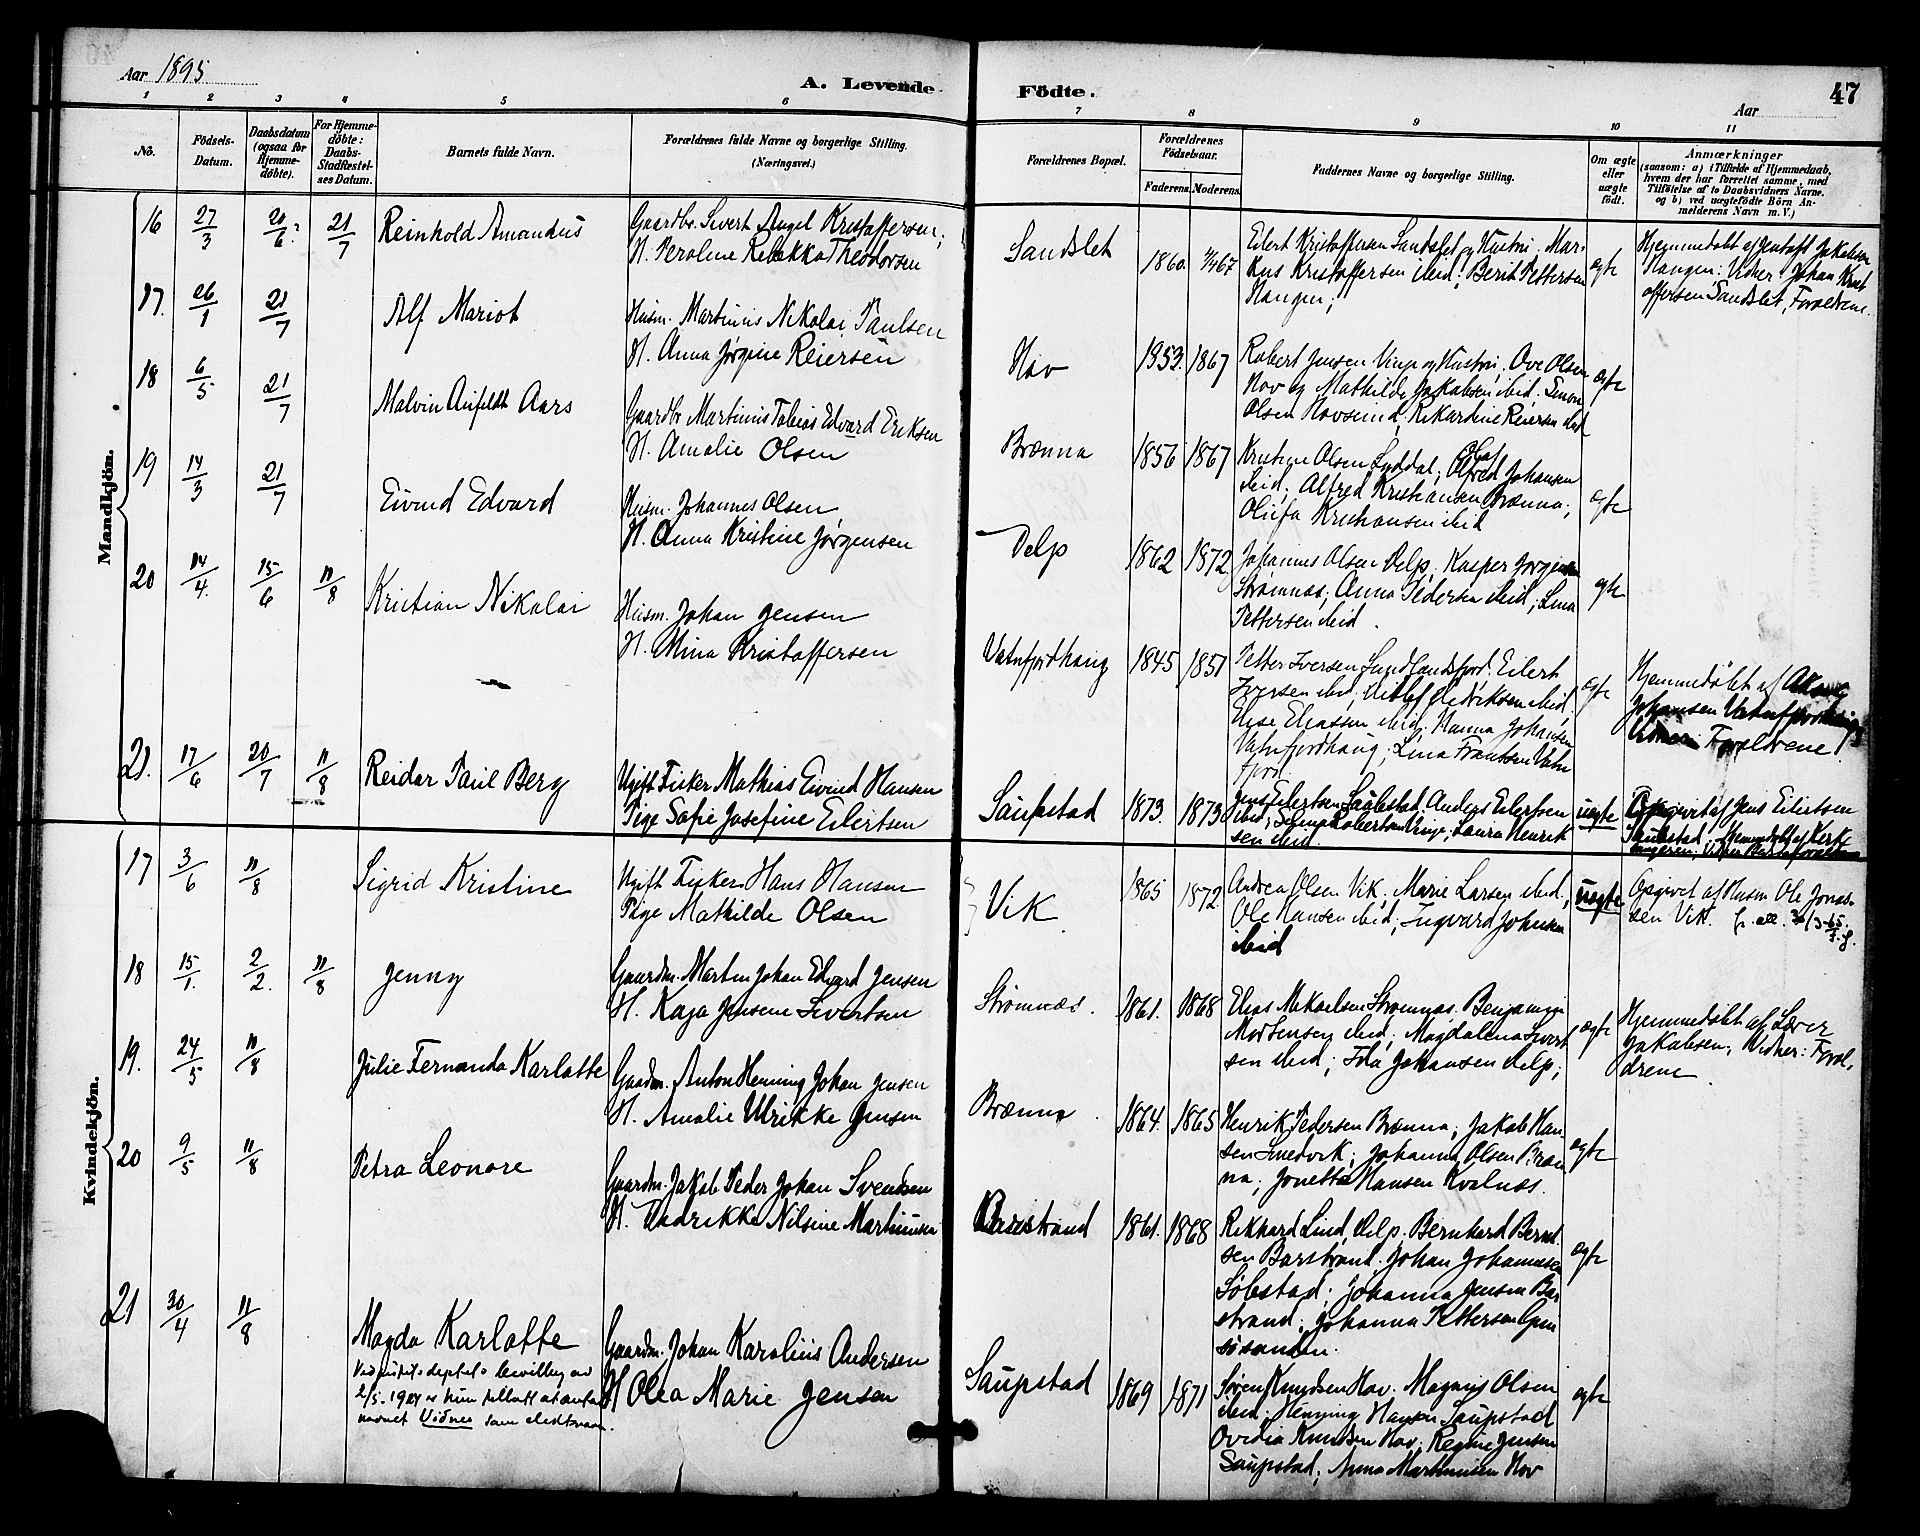 Aar 1895
A. Levende Födte.
Aar
47
1 2 3 4 5 6 7 8 9 10 11
No.
Födsels-Datum.
Daabsdatum (ogsaa for Hjemmedöbte).
For Hjemmedöbte: Daabs-Stadfæstelses Datum.
Barnets fulde Navn.
Forældrenes fulde Navne og borgerlige Stilling. (Næringsvei.)
Forældrenes Bopæl.
Forældrenes Födselsaar.
Faderens. Moderens.
Faddernes Navne og borgerlige Stilling.
Om ægte eller uægte födt.
Anmærkninger
(saasom: a) i Tilfælde af Hjemmedaab, hvem der har forrettet samme, med Tilföielse af to Daabsvidners Navne, og b) ved uægtefödte Börn Anmelderens Navn m. V.)
Mandkjön.
16 27/3 20/6 21/7 Reinhold Amandus
Gaardbr. Sivert Angel Kristoffersen;
H. Peroline Rebekka Theodorsen
Sandslet 1860
Eilert Kristoffersen Sandslet og Hustru. Mar-
kus Kristoffersen ibid; Berit Pettersen
Hangen;
ægte
Hjemmedøbt af Jakobsen
Hangen: Vidner: Johan Krist
offersen Sandslet, Forældrene.
17. 26/1 21/7 Alf Mariot
Husm. Martinus Nikolai Paulsen
H. Anna Jørgine Reiersen
Hov 1853. 1867
Robert Jensen Vinje og Hustru; Ove Olsen
Hov og Mathilde Jakobsen ibid. Simon
Olsen Hovsund; Rikardine Reiersen ibid
ægte
18 6/5 21/7 Malvin Anfeldt Aars
Gaardbr Martinus Tobias Edvard Eriksen
H. Amalie Olsen
Brænna 1856 1867
Kristine Olsen Lyddal; Olaf Johansen
ibid; Alfred Kristiansen Brænna;
Olufa Kristiansen ibid
ægte
19 14/3 21/7 Eivind Edvard
Husm. Johannes Olsen
H. Anna Kristine Jørgensen
Delp 1862 1872
Johannes Olsen Delp. Kasper Jørgensen
Strømnæs; Anna Pedersen ibid; Lina
Pettersen ibid.
ægte
20 14/4. 15/6 11/8 Kristian Nikolai
Husm. Johan Jensen
H. Mina Kristoffersen
Vatnfjordhaug 1845 1851
Petter Iversen Sundlandsfjord. Eilert
Iversen ibid; Ditlef Fredriksen ibid.
Elise Eliassen ibid; Hanna Johansen
Vatnfjordhaug; Lina Frantsen Vatn
fjord.
ægte
Hjemmedøbt af
Johansen Vatnfjordhaug
Vidner: Forældrene.
21. 17/6 20/7 11/8 Reidar Paul Berg
Ugift Fisker Mathias Eivind Hansen
Pige Sofie Josefine Eilertsen
Saupstad 1873. 1873
Jens Eilertsen Saubstad, Anders Eilertsen
ibid; Robertsen Vinje; Laura Henrik
sen ibid.
uægte
Opgivet af Jens Eilertsen
Saubstad, Hjemmedøbt af Kirke
sangeren, Vidner Barneforældrene
Kvindekjön.
17 3/6 11/8 Sigrid Kristine
Ugift Fisker Hans Hansen
Pige Mathilde Olsen
Vik 1865 1872
Andrea Olsen Vik, Marie Larsen ibid,
Ole Hansen ibid; Ingvard Johnsen
ibid
uægte
Opgivet af Husm Ole Jonas-
sen Vik.
18 15/1. 2/2. 11/8 Jenny
Gaardm. Martin Johan Edvard Jensen
H. Kaja Jensene Sivertsen
Strømnæs. 1861. 1868
Elias Mikaelsen Strømnæs. Benjamin
Mortensen ibid, Magdalena Sivert
sen ibid; Ida Johansen Delp;
ægte
Hjemmedøbt af Lærer
Jakobsen; Vidner: Foræl.
drene.
19. 24/5 11/8 Julie Fernanda Karlotte
Gaardm. Anton Henning Johan Jensen
H. Amalie Ulrikke Jensen
Brænna. 1864. 1865
Henrik Pedersen Brænna; Jakob Han-
sen Smedvik; Johanna Olsen Bræn
na; Jonetta Hansen Kvalnæs.
ægte
20 9/5 11/8 Petra Leonore
Gaardm. Jakob Peder Johan Svendsen
H. Hendrikke Nilsine Martinusen
Barstrand 1861. 1868
Rikhard Lind, Delp. Bernhard Bernt.
sen Barstrand. Johan Johannesen
Sølestad; Johanna Jensen Bar
strand; Johanna Pettersen Gim
søsanden.
ægte
21 30/4 11/8 Magda Karlotte
Ved justits deptets bevilling av
2/5. 1924 er hun tillatt at anta
navnet Vidnes som slektsnavn.
Gaardm. Johan Karolius Andersen
H Olea Marie Jensen
Saupstad 1869 1871
Søren Knudsen Hov. Magnus Olsen
ibid; Henning Hansen Saupstad
Ovedia Knudsen Hov; Regine Jensen
Saupstad; Anna Martinusen Hov
ægte